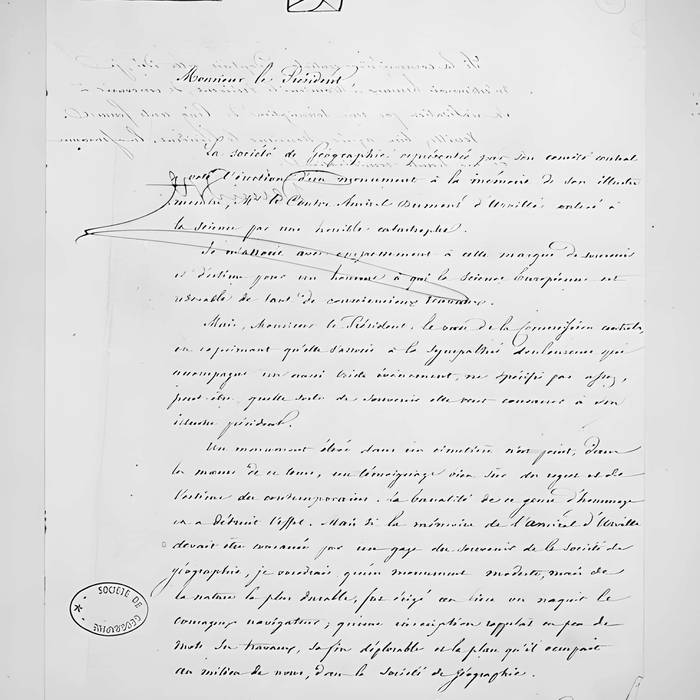 Monsieur le Président
La société de Géographie, représentée par son comité central
vote l'érection d'un monument à la mémoire de son illustre
membre, Mr le Contre Amiral Dumont d'Urville enlevé à
la science par une horrible catastrophe.
Je m'associe avec empressement à cette marque de souvenir
et d'estime pour un homme à qui la science Européenne est
redevable de tant de consciencieux travaux.
Mais, Monsieur le Président, le vœu de la Commission centrale,
en exprimant qu'elle s'associe à la sympathie douloureuse qui
accompagne un aussi triste événement, ne spécifie pas assez,
peut être quelle sorte de souvenir elle veut consacrer à son
illustre président.
Un monument élevé dans un cimetière n'est point, dans
les mœurs de ce tems, un témoignage bien sûr du regret et de
l'estime des contemporains. La banalité de ce genre d'hommage
en a détruit l'effet. Mais si la mémoire de l'amiral d'Urville
devait être consacrée par un gage du souvenir de la société de
géographie, je voudrais qu'un monument modeste, mais de
la nature la plus durable, fut érigé au lieu où naquit le
courageux navigateur; qu'une inscription rappelat en peu de
mots ses travaux, sa fin déplorable et la place qu'il occupait
au milieu de nous, dans la société de Géographie.
SOCIÉTÉ DE GÉOGRAPHIE